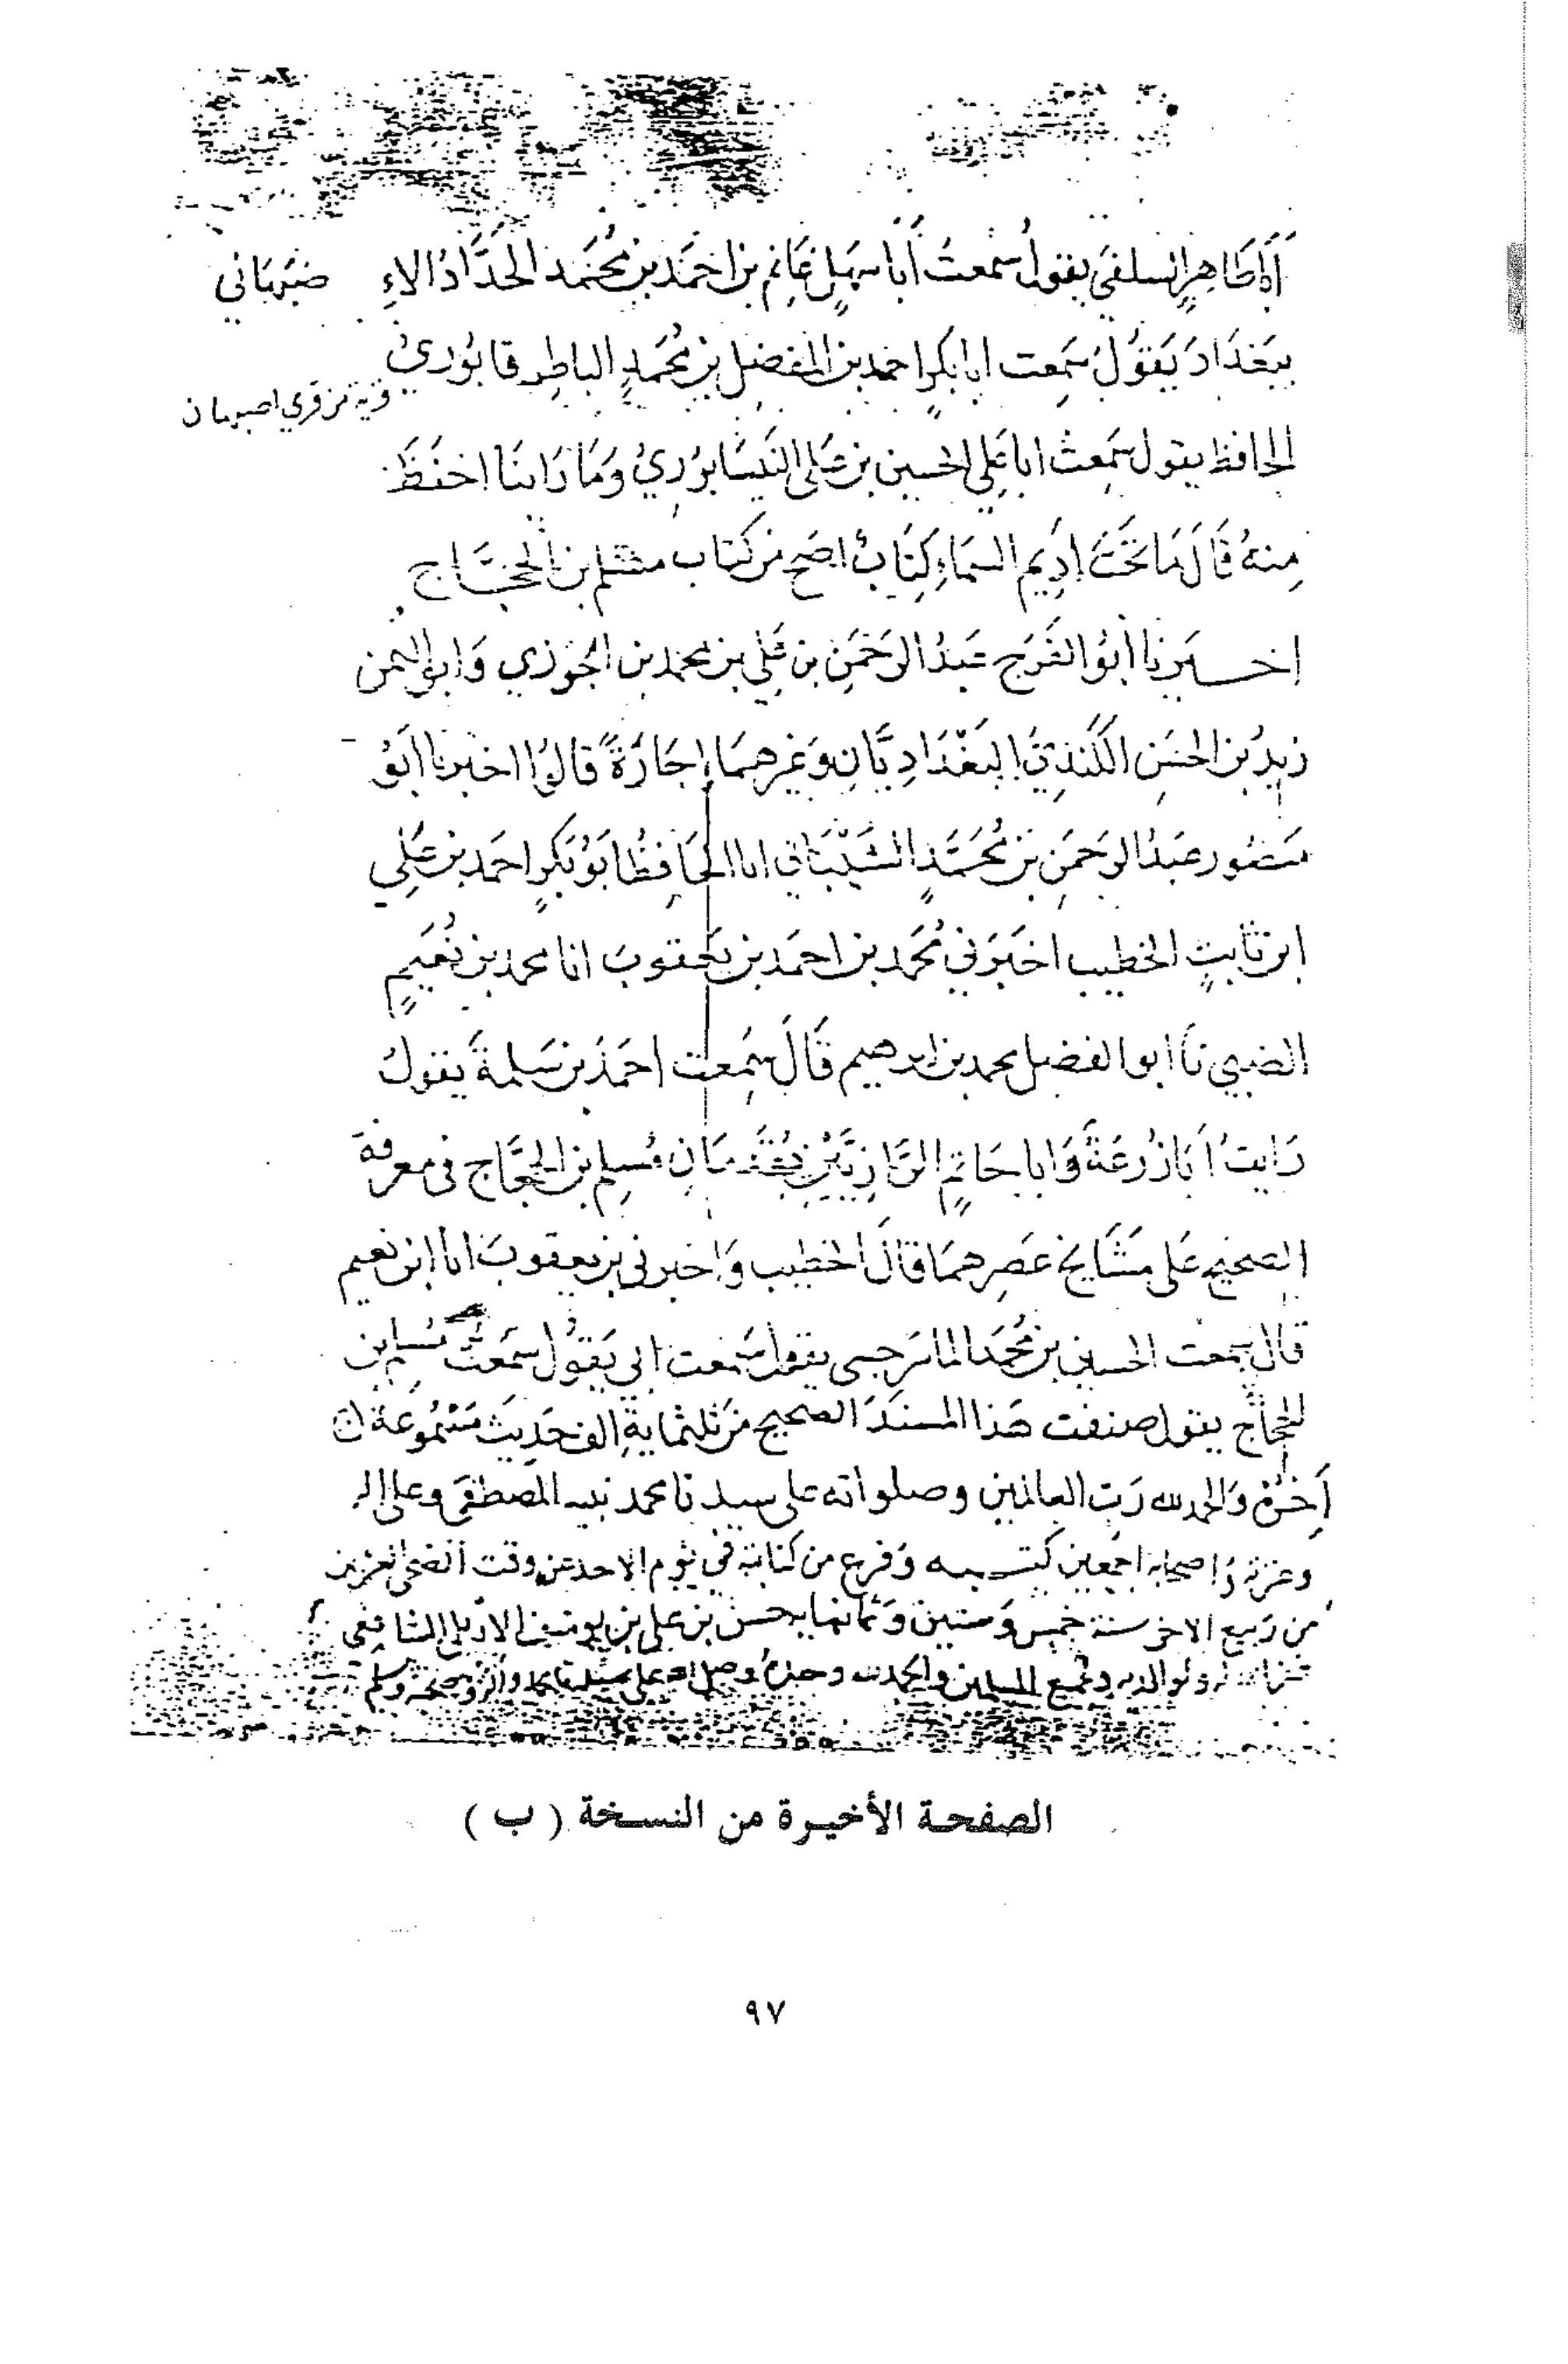 أَبَا طَاهِرٍ السلفيَ يقولُ سَمعتُ أَبَا سَهلٍ غَانِم بن احمَد بن مُحَمَد الحَدَّادُ الاءِ ضبَهَاني
ببَغدَادَ يَقوُلُ سَمِعت ابا بكرٍ احمد بن المفضل بن مُحمَدٍ الباطِرقابوُريُ
قرية من قري اصبهان
الحافظ يقول سَمِعتُ ابا عَلِي الحسين بن عَلي النَيسَابوُرِيُ وَمَا رَاينَا احفَظَ
مِنهُ قَالَ مَا تَحَتَ اَدِيم السَمَاءِ كِتَابُ اصَح من كتاب مسلم بن الحجَّاج
اخبرنا أبوُ الفَرَج عَبدُ الرَحمَنِ بن عَلِي بن محمد بن الجَوزي وَابو اليمن
زيدُ بن الحسَنِ الكِنديَ البَغْدَادِيَّانِ وَغيرهمَا إجَازَةً قالوُا اخبرنا ابَوُ
منصُور عَبدُ الرحمَنِ بن مُحَمَّدٍ الشَيْبَاني انا الحَافِظُ ابَوُ بكرٍ احمَد بن عَلِي
ابن ثَابتٍ الخطيب اخبَرَني مُحَمد بن احمَد بن يَعقوبَ انا محمد بن نُعَيمٍ
الضبي نَا ابو الفضل محمد بن ابرهيم قَالَ سَمِعت احمَدَ بن سَلِمةَ يقولُ
رَايتُ أَبَا زُرعَةَ وَابا حَاتمٍ الرَّازِيَّيْنِ يُقَدِمَانِ مُسلِم بن الحجَّاج في معرفة
الصحيح عَلي مَشَايخ عَصرِهمَا قالَ الخطيب وَاخبرني بن يعقوبَ انا ابن نعيم
قال سمعت الحسين بن مُحمَد الماسَرجسي يقول سَمعت ابي يَقوُل سَمعَتُ مسلم بن
الحجاَّج يقول صنفت هَذا المسندَ الصحيح من ثلثمايةِ الف حَديث مَسْمُوعَة
آخرُه وَالحمد لله رَب العالمين وصلواته علي سيدنا محمد نبيه المصطفي وعلي اله
وعترته وَاصحابه اجمعين كتبه وَفرع من كتابته في يوم الاحد
من رَبيع الاخر سنة خمس وَستين وَثمانمايه حسن بن علي بن يوسف الاربلي الشافعي
ولوالديه ولجميع المسلمين والحمد لله وحده وصلي الله علي سيدنا محمد وآله وصحبه وسلم
الصفحة الأخيرة من النسخة ( ب )
٩٧